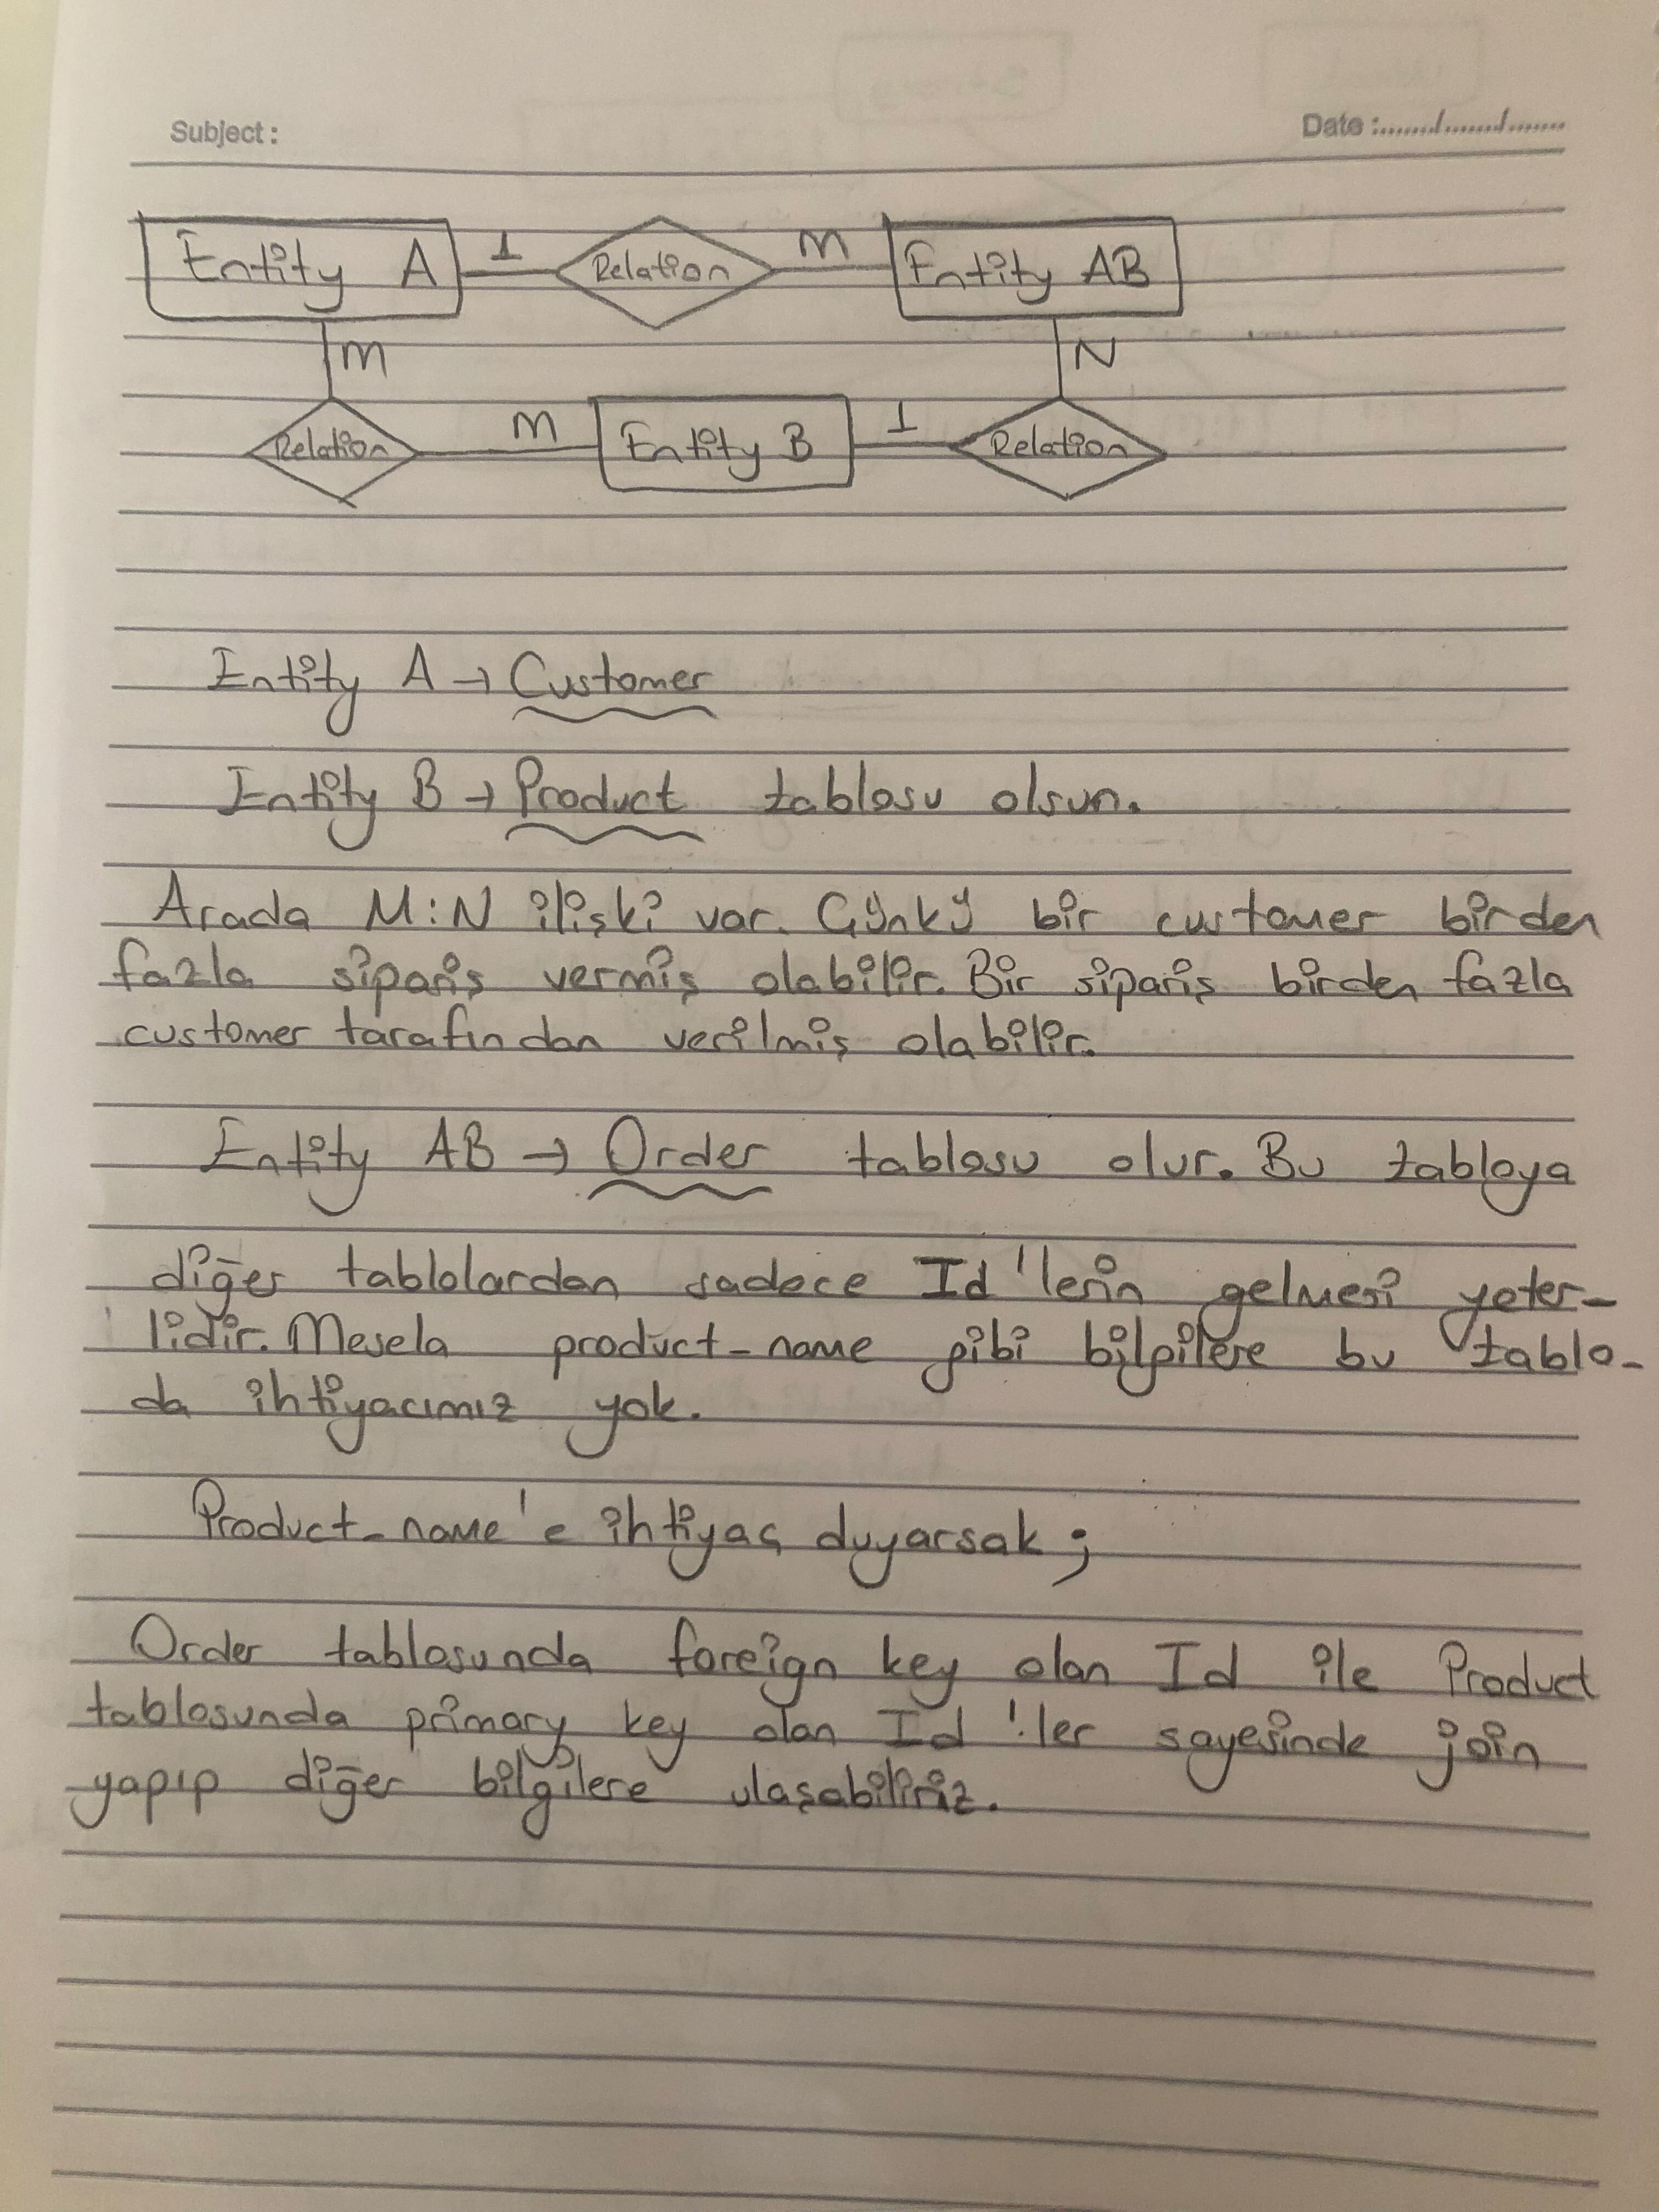 Subject :
Date :......./......./.......
Entity A 1 Relation M Entity AB
M N
Relation M Entity B 1 Relation
Entity A → Customer
Entity B → Product tablosu olsun.
Arada M:N ilişki var. Çünkü bir customer birden
fazla sipariş vermiş olabilir. Bir sipariş birden fazla
customer tarafından verilmiş olabilir.
Entity AB → Order tablosu olur. Bu tabloya
diğer tablolardan sadece Id'lerin gelmesi yeter-
lidir. Mesela product_name gibi bilgilere bu tablo-
da ihtiyacımız yok.
Product_name'e ihtiyaç duyarsak ;
Order tablosunda foreign key olan Id ile Product
tablosunda primary key olan Id'ler sayesinde join
yapıp diğer bilgilere ulaşabiliriz.